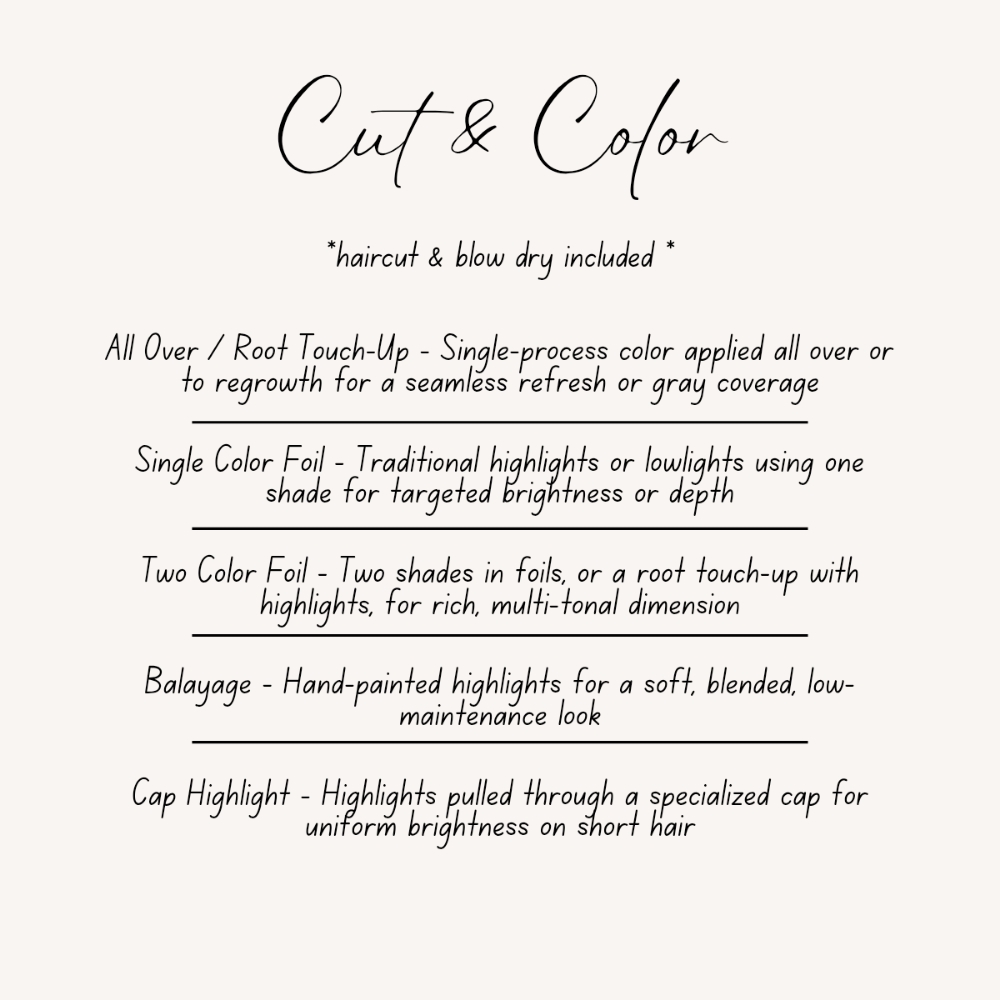 Cut & Color
*haircut & blow dry included *
All Over / Root Touch-Up - Single-process color applied all over or
to regrowth for a seamless refresh or gray coverage
Single Color Foil - Traditional highlights or lowlights using one
shade for targeted brightness or depth
Two Color Foil - Two shades in foils, or a root touch-up with
highlights, for rich, multi-tonal dimension
Balayage - Hand-painted highlights for a soft, blended, low-
maintenance look
Cap Highlight - Highlights pulled through a specialized cap for
uniform brightness on short hair